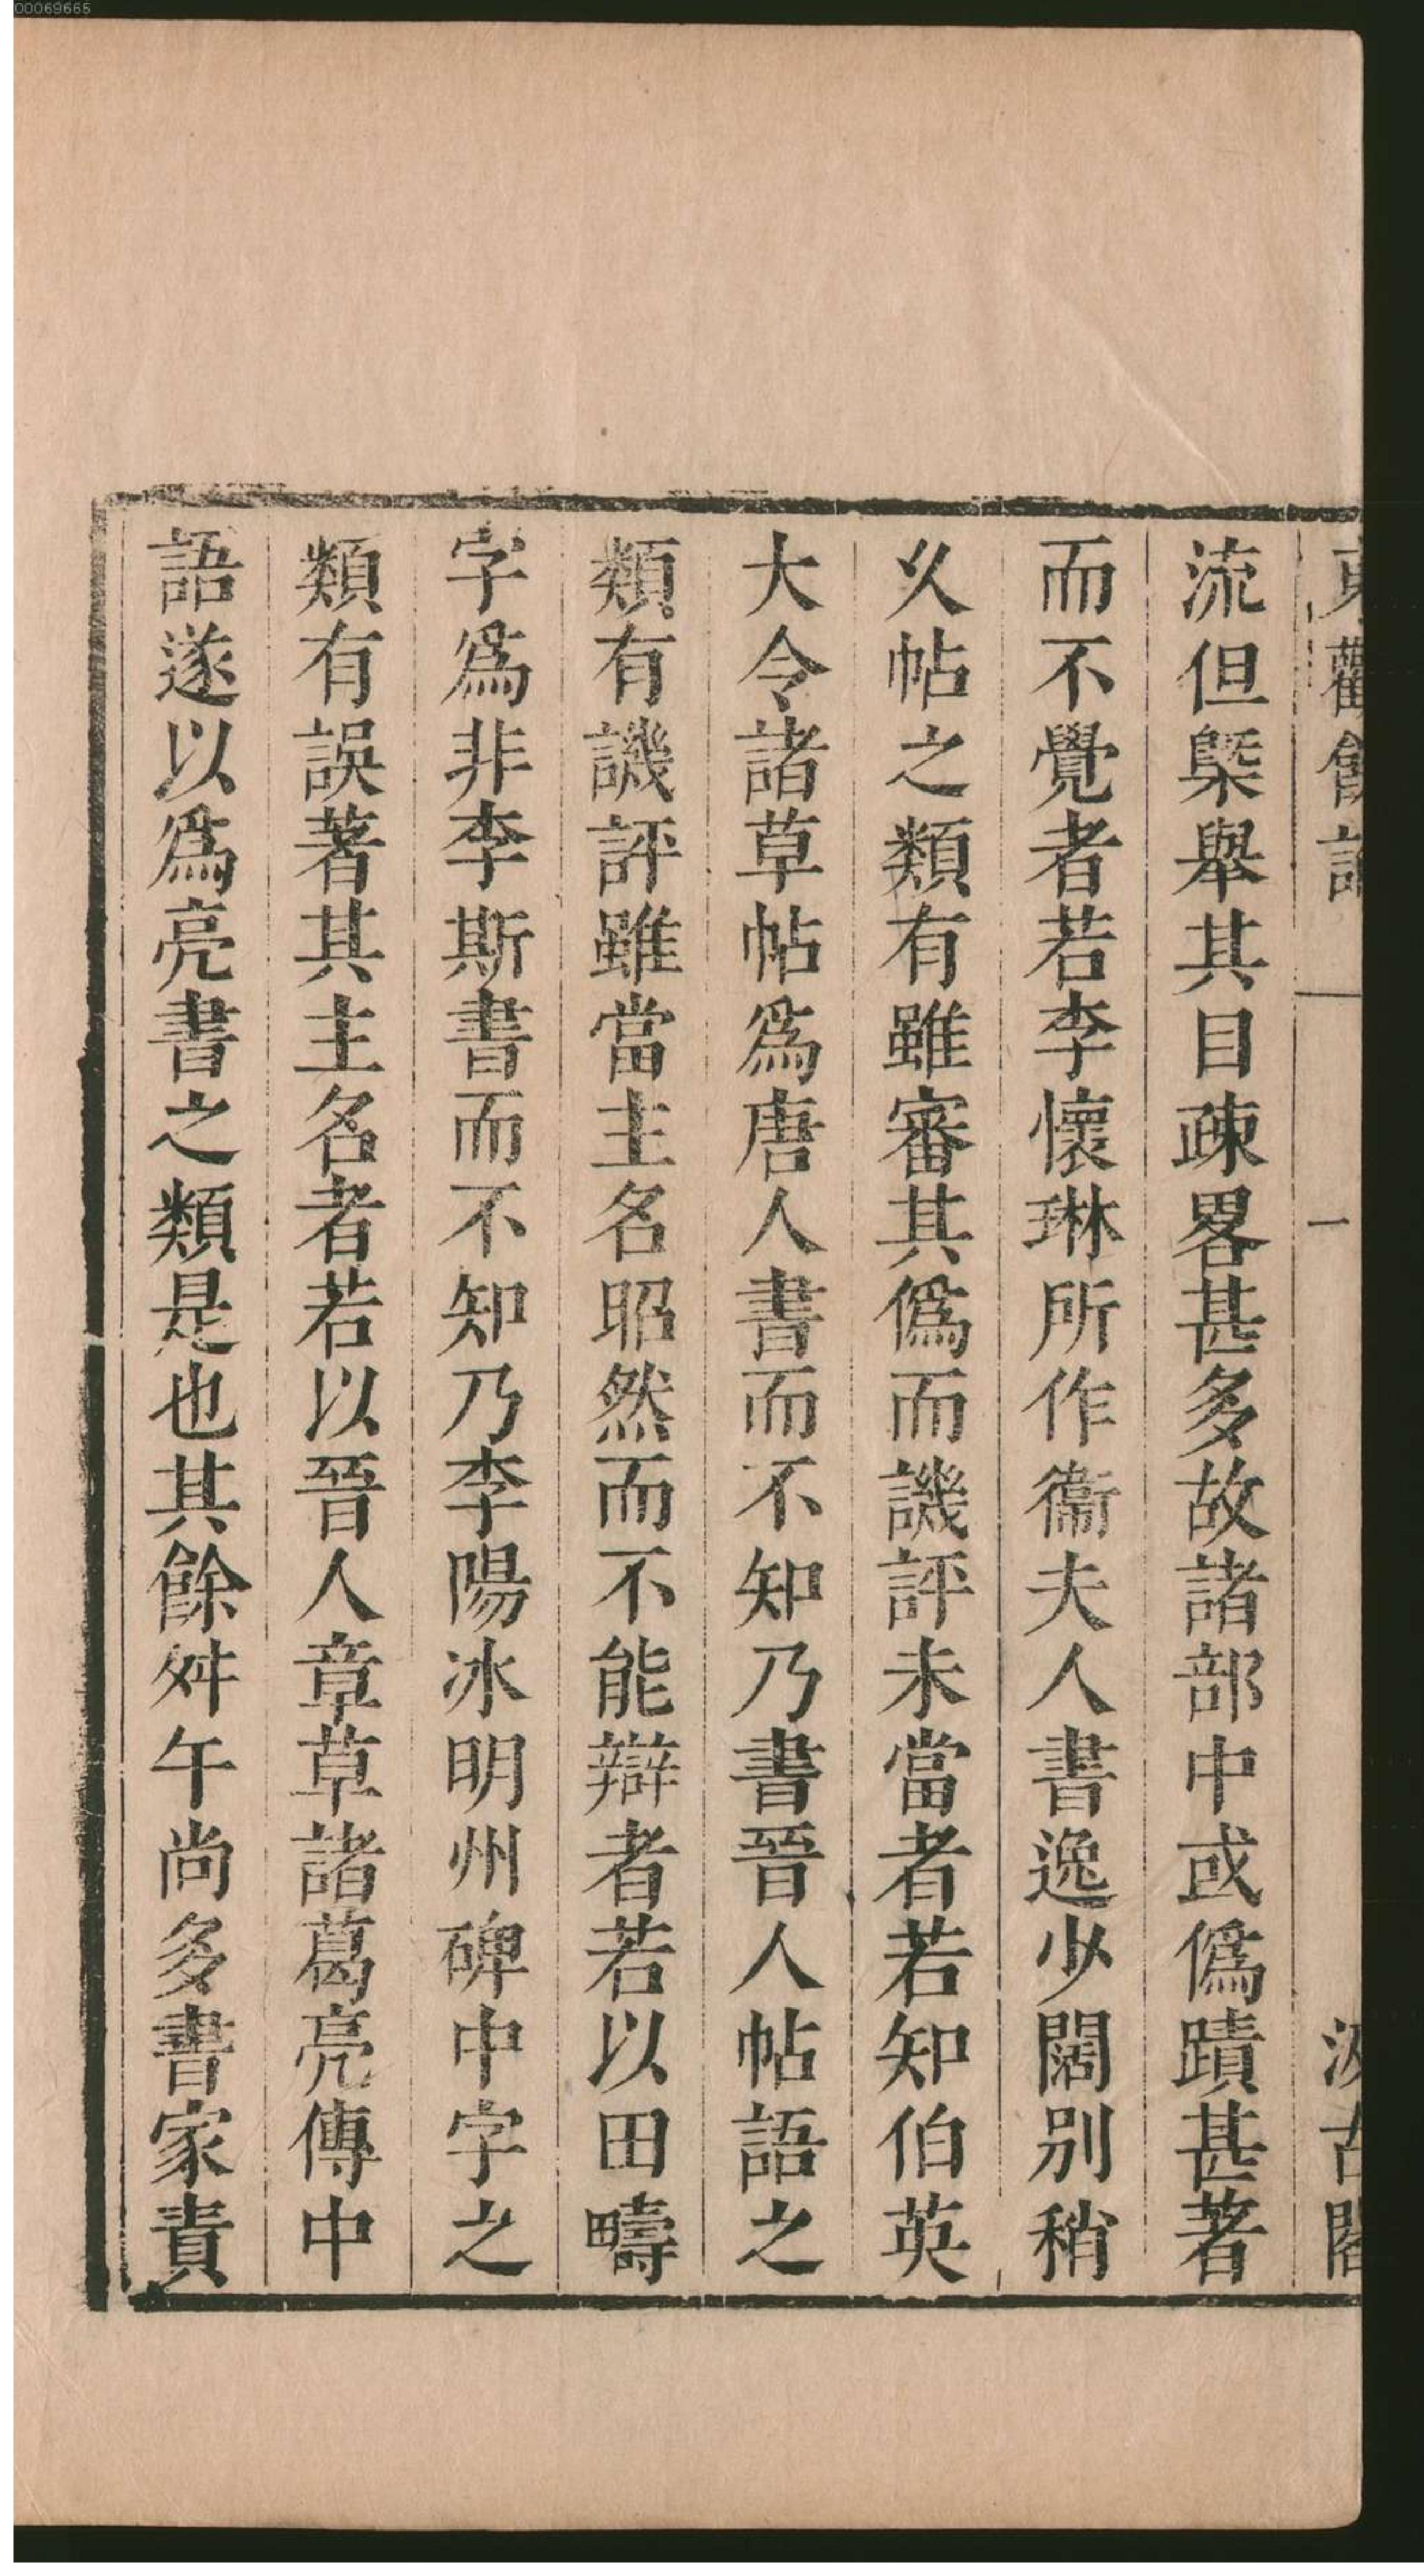 00069665
東觀餘論
一
汲古閣
流但槩舉其目疎畧甚多故諸部中或僞蹟甚著
而不覺者若李懷琳所作衞夫人書逸少闊別稍
乆帖之類有雖審其僞而譏評未當者若知伯英
大令諸草帖爲唐人書而不知乃書晉人帖語之
類有譏評雖當主名昭然而不能辯者若以田疇
字爲非李斯書而不知乃李陽冰明州碑中字之
類有誤著其主名者若以晉人章草諸葛亮傳中
語遂以爲亮書之類是也其餘舛午尚多書家責